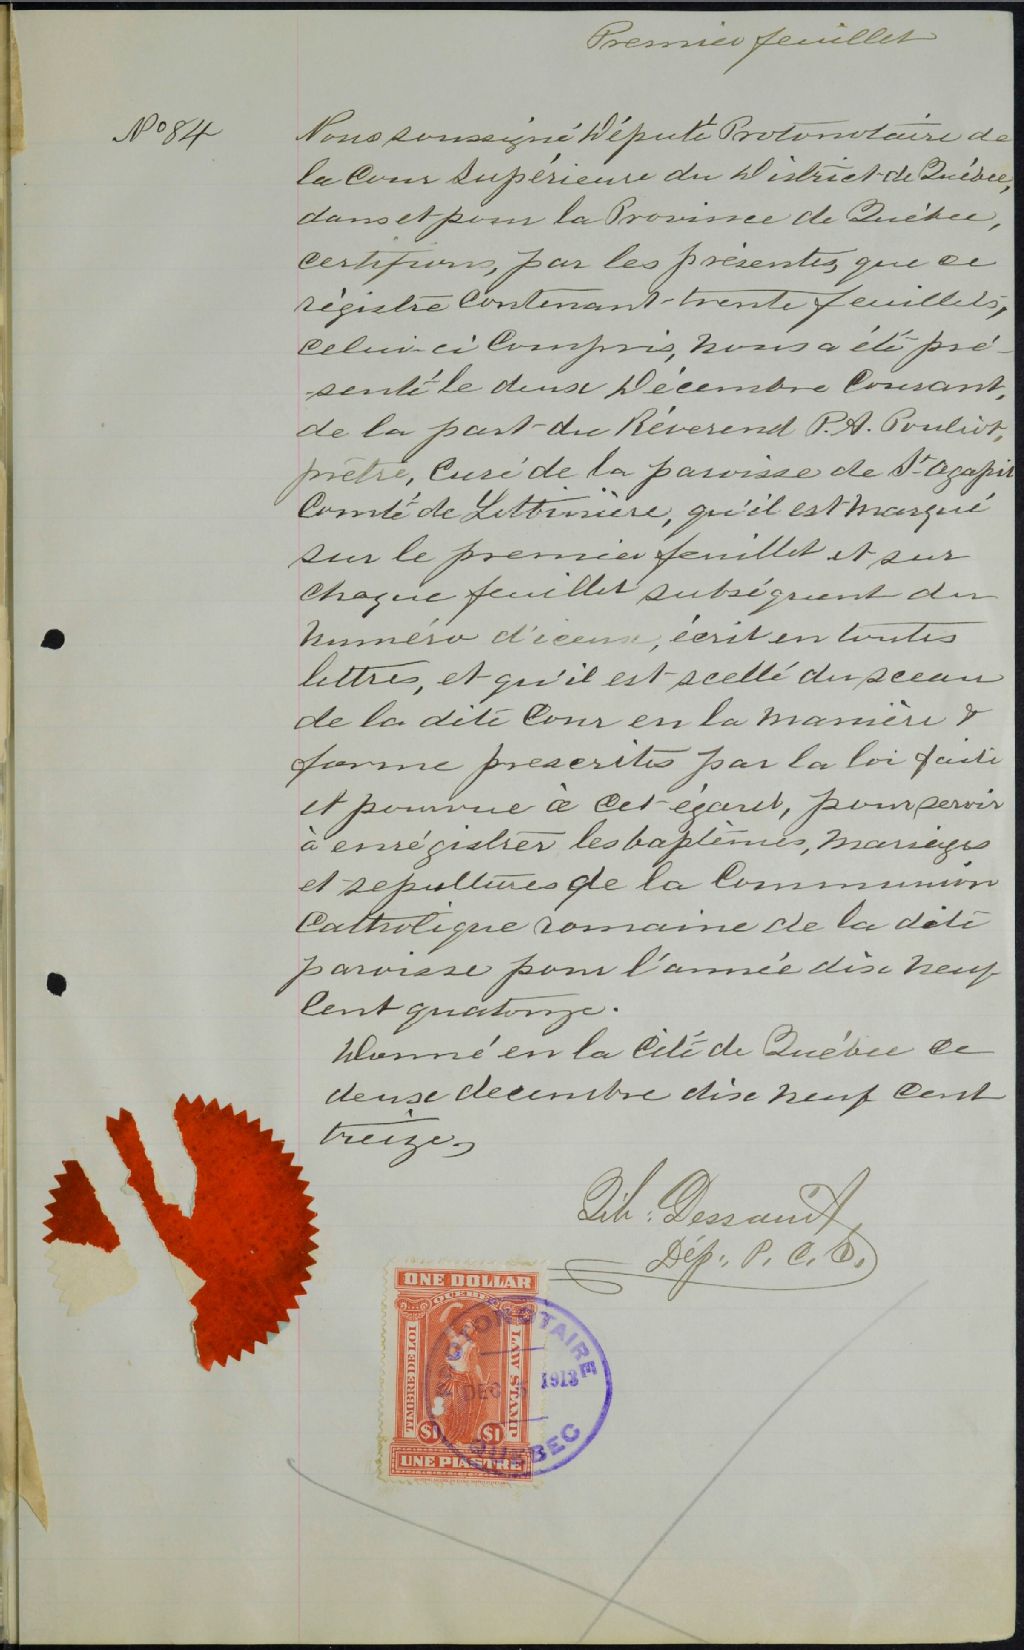 Premier feuillet
No 84
Nous soussigné Député Protonotaire de
la Cour Supérieure du District de Québec,
dans et pour la Province de Québec,
certifions, par les présentes, que ce
régistre contenant trente feuillets,
celui-ci compris, nous a été pré-
senté le deux Décembre Courant,
de la part du Révérend P. A. Pouliot,
prêtre, Curé de la paroisse de St Agapit
Comté de Lotbinière, qu'il est marqué
sur le premier feuillet et sur
chaque feuillet subséquent du
numéro d'iceux, écrit en toutes
lettres, et qu'il est scellé du sceau
de la dite Cour en la manière &
forme prescrites par la loi faite
et pourvue à cet égard, pour servir
à enrégistrer les baptêmes, mariages
et sepultures de la Communion
Catholique romaine de la dite
paroisse pour l'année dix neuf
Cent quatorze.
Donné en la Cité de Québec ce
deux decembre dix neuf cent
treize,
Dép. P. C. S.
ONE DOLLAR
QUEBEC
TIMBRE DE LOI
LAW STAMP
$1 $1
UNE PIASTRE
PROTONOTAIRE
DEC 1913
QUEBEC